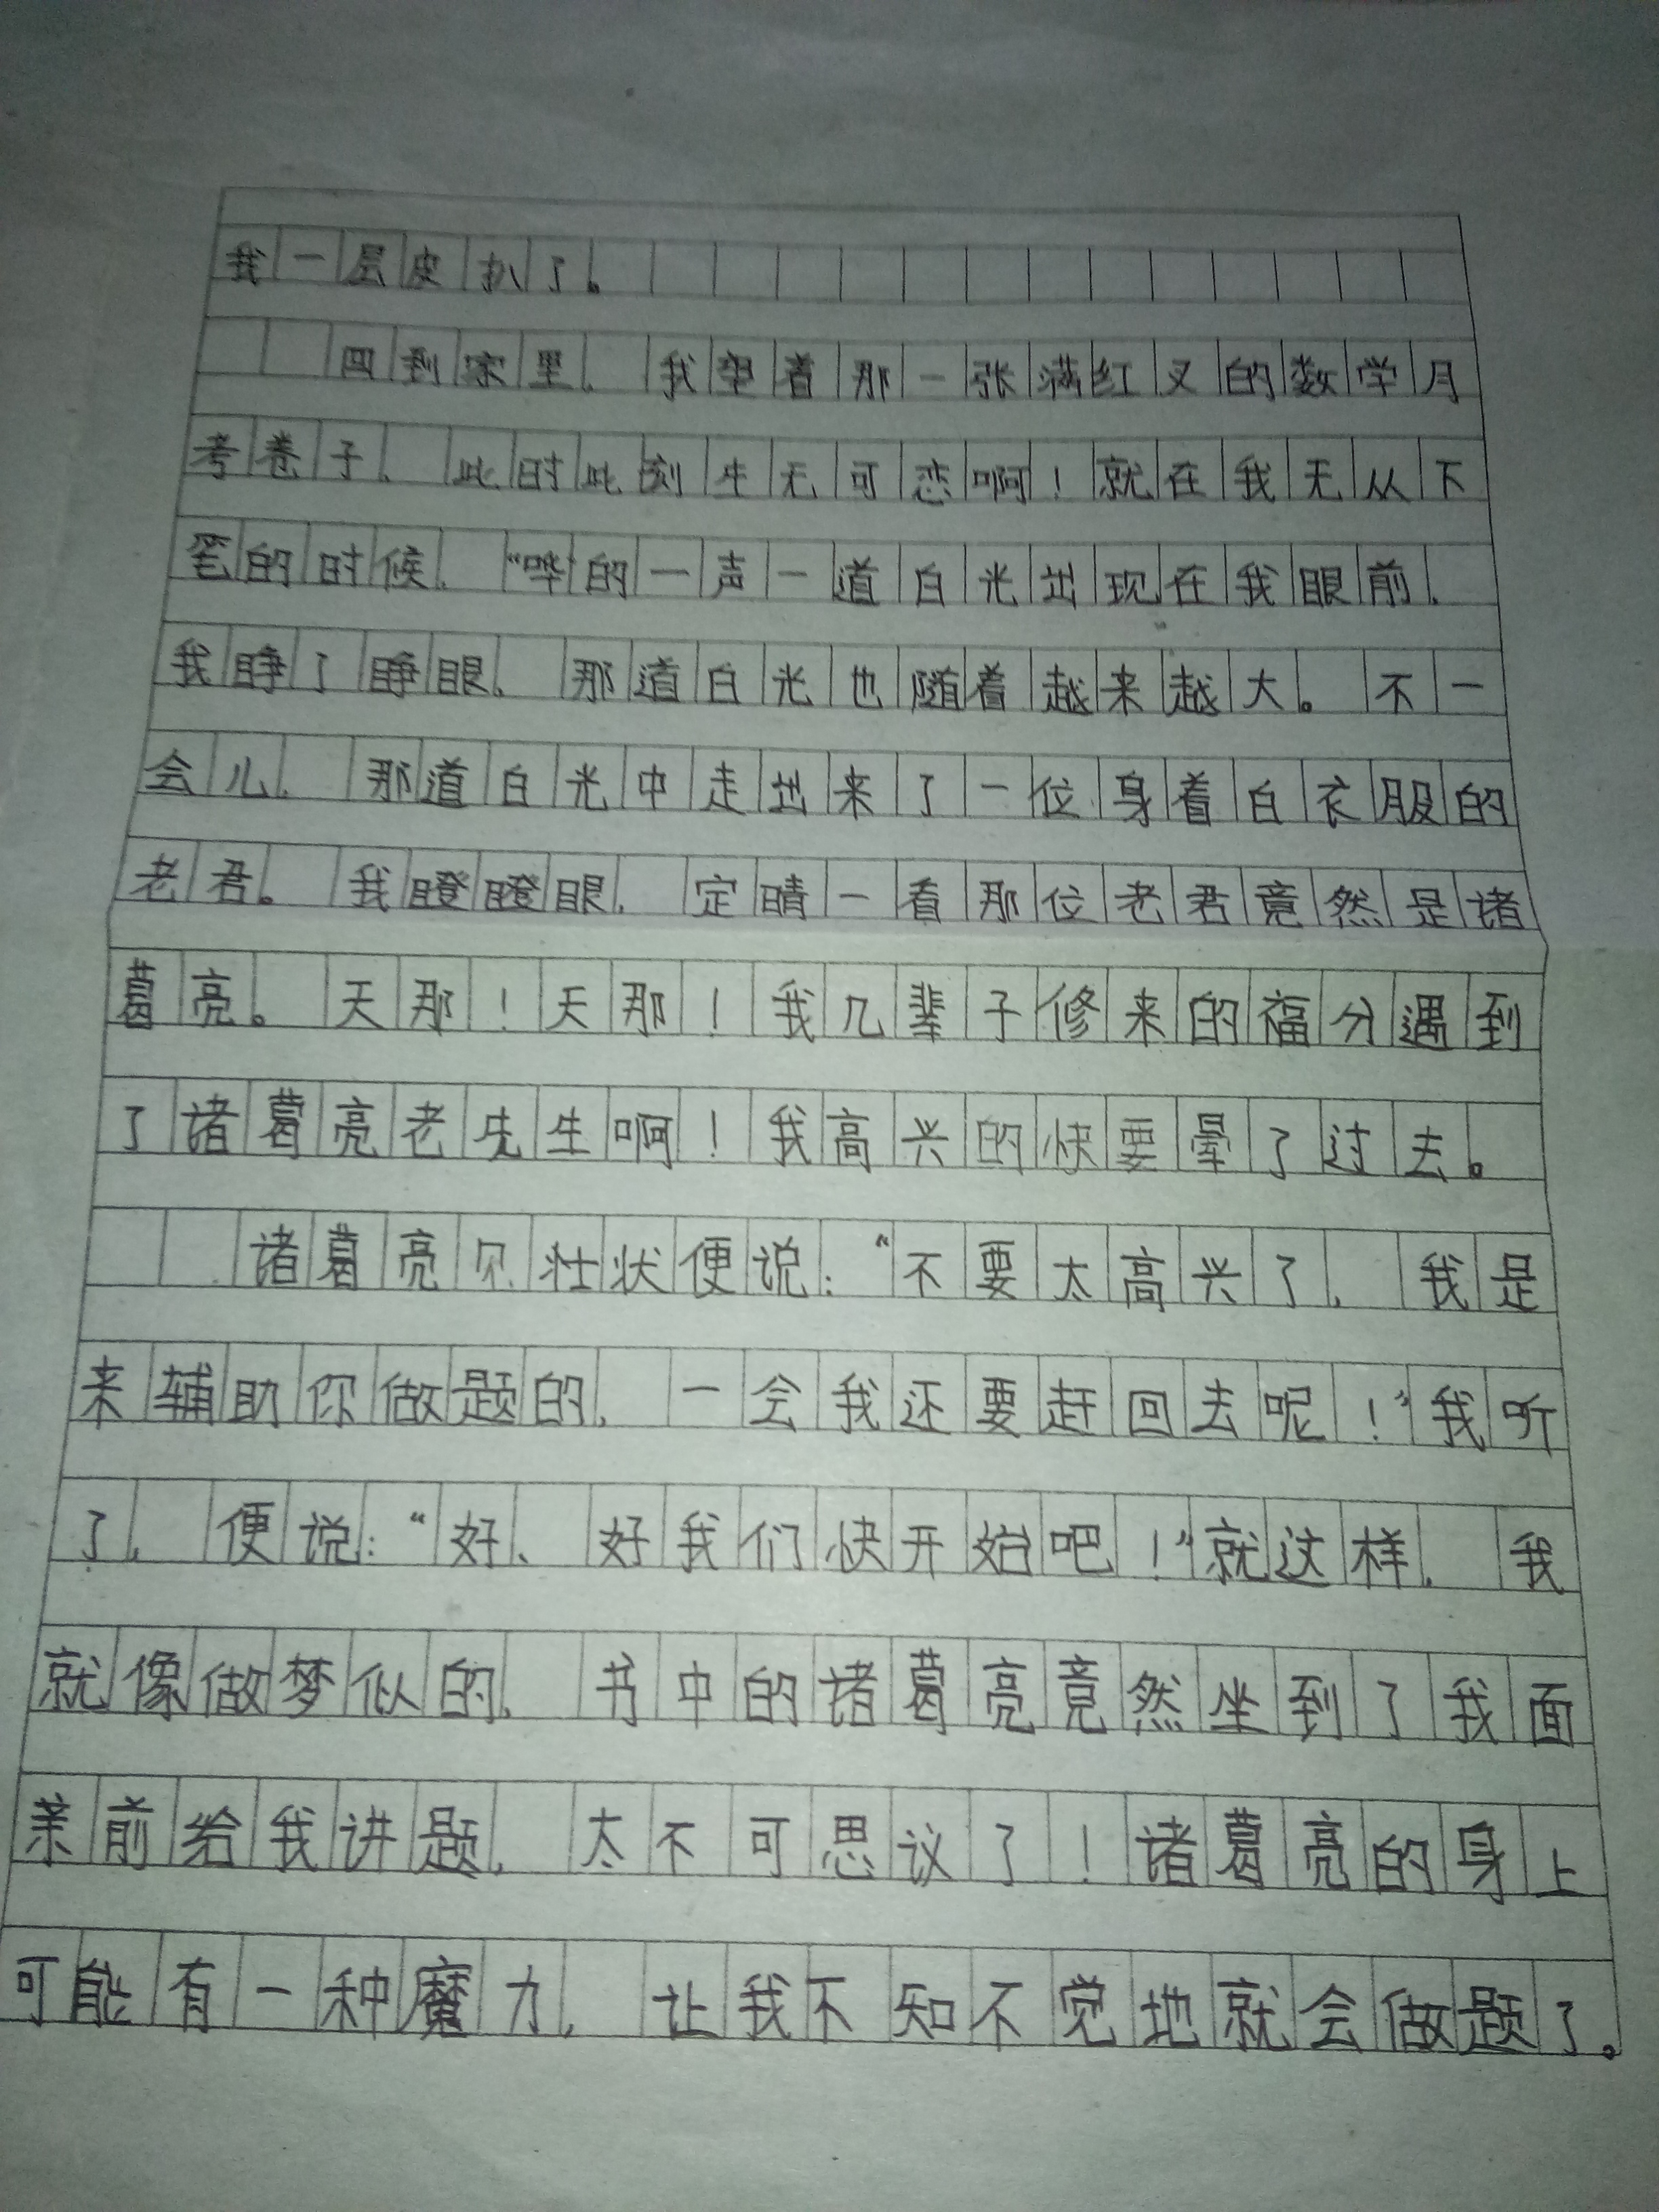 我一层皮扒了。
回到家里，我望着那一张满红叉的数学月
考卷子，此时此刻生无可恋啊！就在我无从下
笔的时候，“哗的一声一道白光出现在我眼前，
我睁了睁眼，那道白光也随着越来越大。不一
会儿，那道白光中走出来了一位身着白衣服的
老君。我瞪瞪眼，定睛一看那位老君竟然是诸
葛亮。天那！天那！我几辈子修来的福分遇到
了诸葛亮老先生啊！我高兴的快要晕了过去。
诸葛亮见壮状便说：“不要太高兴了，我是
来辅助你做题的，一会我还要赶回去呢！”我听
了，便说：“好、好我们快开始吧！”就这样，我
就像做梦似的，书中的诸葛亮竟然坐到了我面
前给我讲题，太不可思议了！诸葛亮的身上
可能有一种魔力，让我不知不觉地就会做题了。